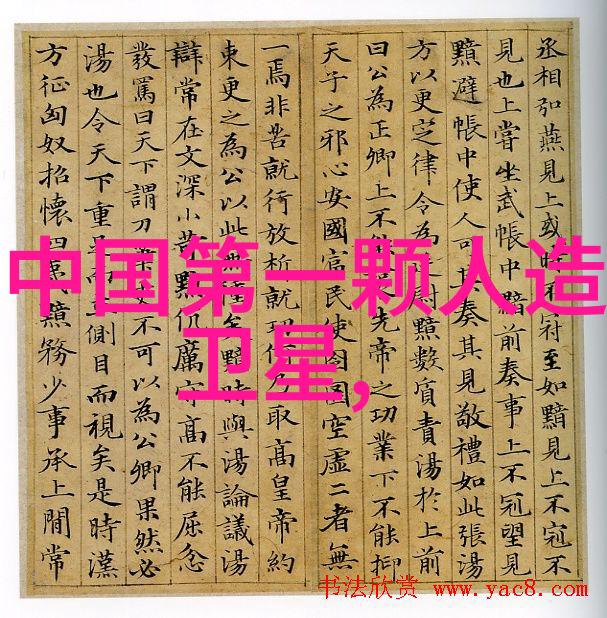 中国第一颗人造
卫星,
丞相弘燕見上或時不冠至如黯見上不冠不
見也上嘗坐武帳中黯前奏事上不冠望見
黯避帳中使人可其奏其見敬禮如此張湯
方以更定律令為尉黯數質責湯於上前
曰公為正卿上不先帝之功業下不能抑
天子之邪心安國富民使囹圄空虛二者無
一焉非苦就行放析就功何乃取高皇帝約
束更之為公以此無種矣黯時與湯論議湯
辯常在文深小苛黯伉厲守高不能屈忿
發罵曰天下謂刀吏不可以為公卿果然必
湯也令天下重足而立側目而視矣是時漢
方征匈奴招懷四夷黯務少事承上閒常
书法欣赏 www.yac8.com